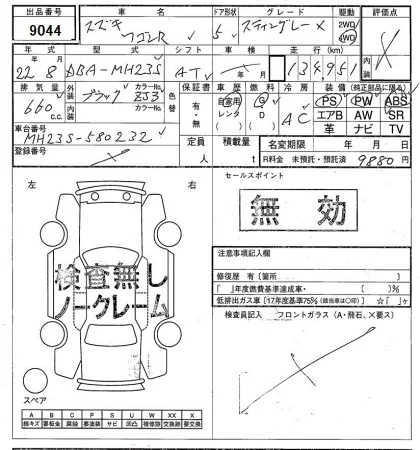 出品番号 車名 ドア形状 グレード 駆動 評価点
9044 スズキ ワゴンR 5 スティングレー X 2WD 4WD
年式 型式 シフト 車検 走行(km) 内装
22年8月 DBA-MH23S AT 134951
排気量 外装 カラーNo. 色替 保証書 車歴 燃料 冷房 装備(純正部品に限る)
660 c.c. ブラック ZJ3 有・無 自家用 レンタ ( ) G D ( ) AC PS PW ABS
エアB AW SR
革 ナビ TV
車台番号 定員 積載量 名変期限 年 月 日
MH23S-580232 人 t R料金 未預託・預託済 9880円
登録番号
左 右 セールスポイント
無効
注意事項記入欄
検査無し
ノークレーム
修復歴 有[箇所
[ ]年度燃費基準達成車・
低排出ガス車[17年度基準75%(該当車は○印) ☆[ ]ヶ
検査員記入 フロントガラス(A・飛石、×要ス)
スペア
A B C P S U W XX X
線キズ 要板金 腐蝕 要塗装 サビ 凹凸 補修跡 交換跡 要交換